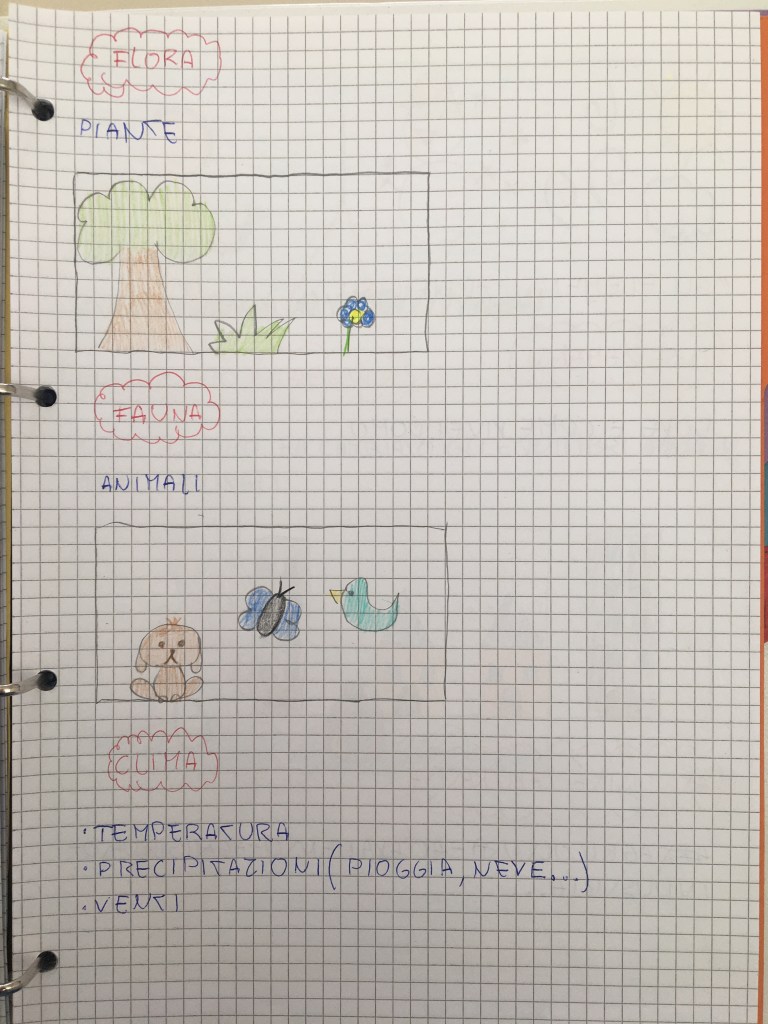 FLORA
PIANTE
FAUNA
ANIMALI
CLIMA
· TEMPERATURA
· PRECIPITAZIONI (PIOGGIA, NEVE...)
· VENTI